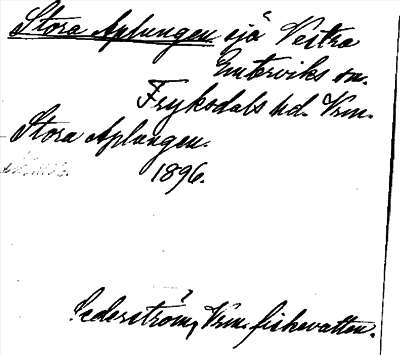 Stora Aplungen sjö Vestra
Emterviks sn.
Fryksdals hd. Vrm.
Stora Aplungen.
1896.
Cederström, Vrm. fiskevatten.